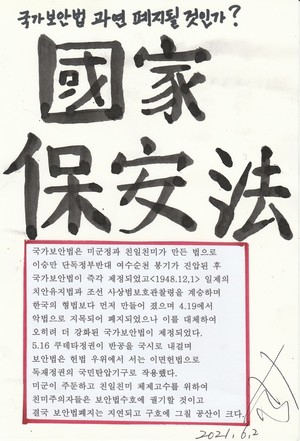 국가보안법 과연 폐지될 것인가?
國家
保安法
국가보안법은 미군정과 친일친미가 만든 법으로
이승만 단독정부반대 여수순천 봉기가 진압된 후
국가보안법이 즉각 제정되었고<1948.12.1> 일제의
치안유지법과 조선 사상범보호관찰령을 계승하며
한국의 형법보다 먼저 만들어 졌으며 4.19에서
악법으로 지목되어 폐지되었으나 이를 대체하여
오히려 더 강화된 국가보안법이 제정되었다.
5.16 쿠데타정권이 반공을 국시로 내걸며
보안법은 헌법 우위에서 서는 이면헌법으로
독재정권의 국민탄압기구로 작용했다.
미군이 주둔하고 친일친미 체제고수를 위하여
친미주의자들은 보안법수호에 궐기할 것이고
결국 보안법폐지는 지연되고 구호에 그칠 공산이 크다.
2021.6.2